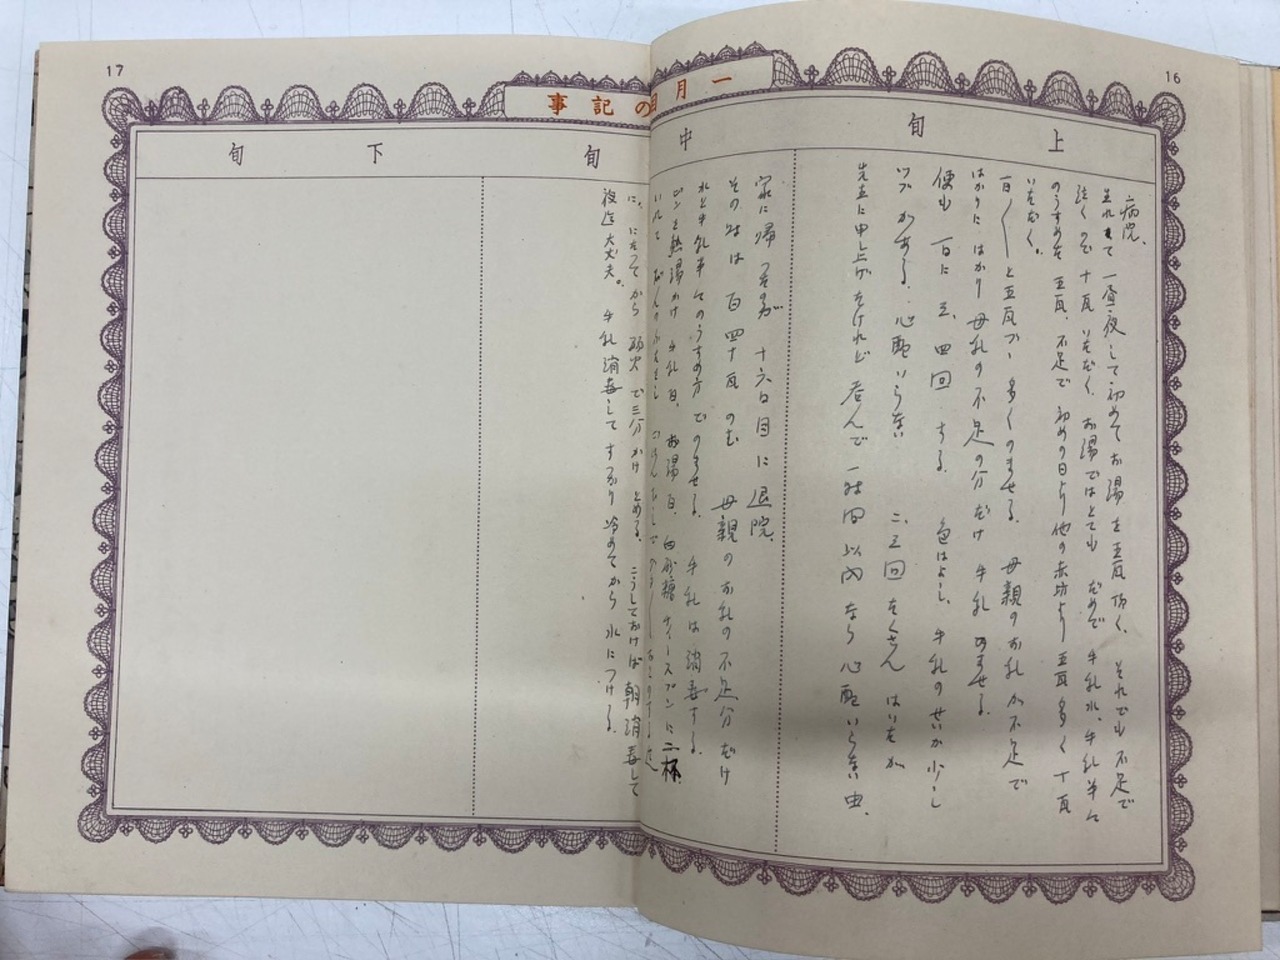 16
17
一月目の記事
上旬
病院、
生れ来て 一昼夜して 初めて お湯を 五瓦 頂く、 それでも 不足で
泣くので 十瓦 いただく、 お湯ではとても だめで 牛乳水、牛乳半に
のうすめを 五瓦、不足で 初めの日より 他の赤坊より 五瓦多く 十瓦
いただく。
一日一日と五瓦づゝ 多くのませる。 母親のお乳が不足で
はかりに はかり 母乳の不足の分だけ 牛乳のませる。
便も 一日に 三、四回 する 色はよし、牛乳のせいか少し
ツブがある、心配いらない 二、三回 たくさん はいたが
先生に申し上げたけれど 呑んで 一時間以内なら心配いらない由、
中旬
家に帰つたのが 十六日目に 退院、
その時は 一日 四十瓦 のむ 母親のお乳の不足分だけ
水と牛乳半々のうすめ方で のませる。 牛乳は消毒する。
ビンを熱湯かけ 牛乳 お湯 白砂糖 ナイースプンに二杯、
いれて
に、にたつてから 弱火で三分かけ とめる、こうしておけば 朝消毒して
夜迄大丈夫。 牛乳消毒して すつかり冷めてから 水につける。
下旬